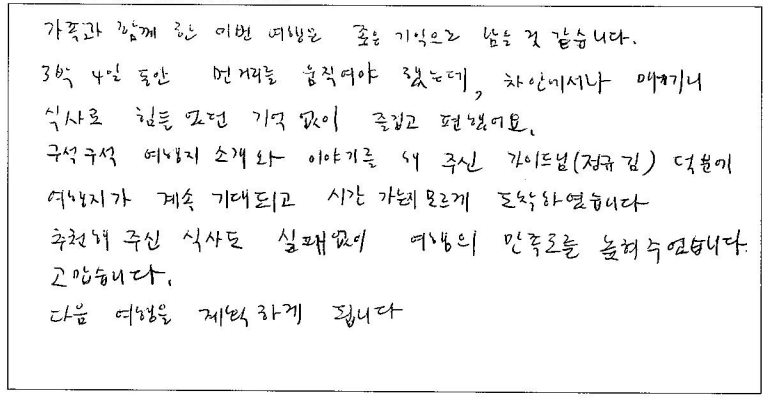 가족과 함께 한 이번 여행은 좋은 기억으로 남을 것 같습니다.
3박 4일 동안 먼거리를 움직여야 했는데, 차안에서나 매끼니
식사로 힘든 었던 기억 없이 즐겁고 편했어요.
구석구석 여행지 소개와 이야기를 해 주신 가이드님(정규김) 덕분에
여행지가 계속 기대되고 시간 가는지 모르게 도착하였습니다
추천해 주신 식사도 실패없이 여행의 만족도를 높혀주었습니다.
고맙습니다.
다음 여행을 계획하게 됩니다